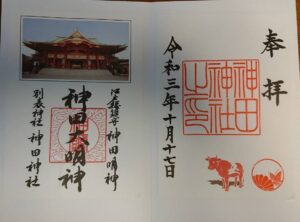 奉拝
神田
神社
之印
令和三年十月十七日
江戸総鎮守 神田明神
神田大明神
別表神社 神田神社